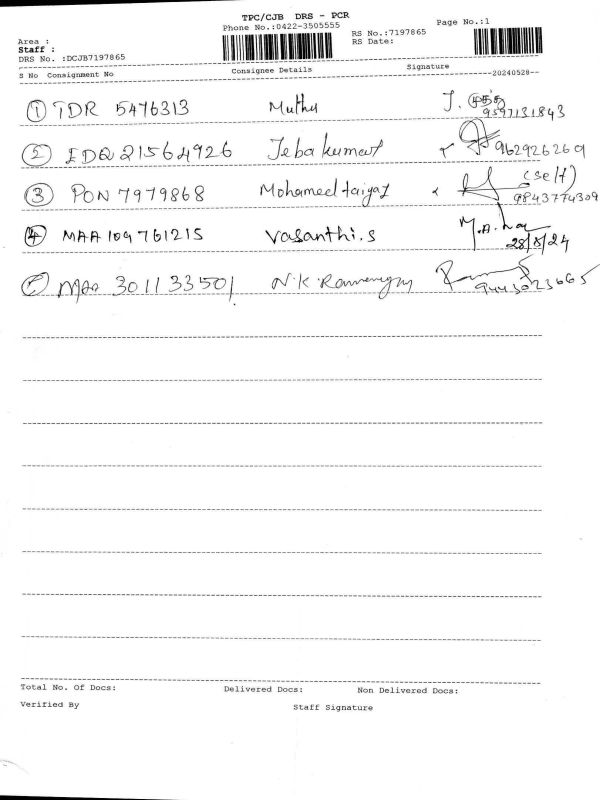 TPC/CJB DRS - PCR
Phone No.:0422-3505555 Page No.:1
Area : RS No.:7197865
Staff : RS Date:
DRS No. :DCJB7197865
S No Consignment No Consignee Details Signature
--20240528--
1 TDR 5476313 Muthu J. 9597131843
2 IDQ 21564926 Jeba kumar 9629262609
3 PON 7979868 Mohamed (self) 9843774309
4 MAA 109761215 Vasanthi.S M.A.
28/5/24
5 MAA 301133501 N.K. 9443023665
Total No. Of Docs: Delivered Docs: Non Delivered Docs:
Verified By Staff Signature